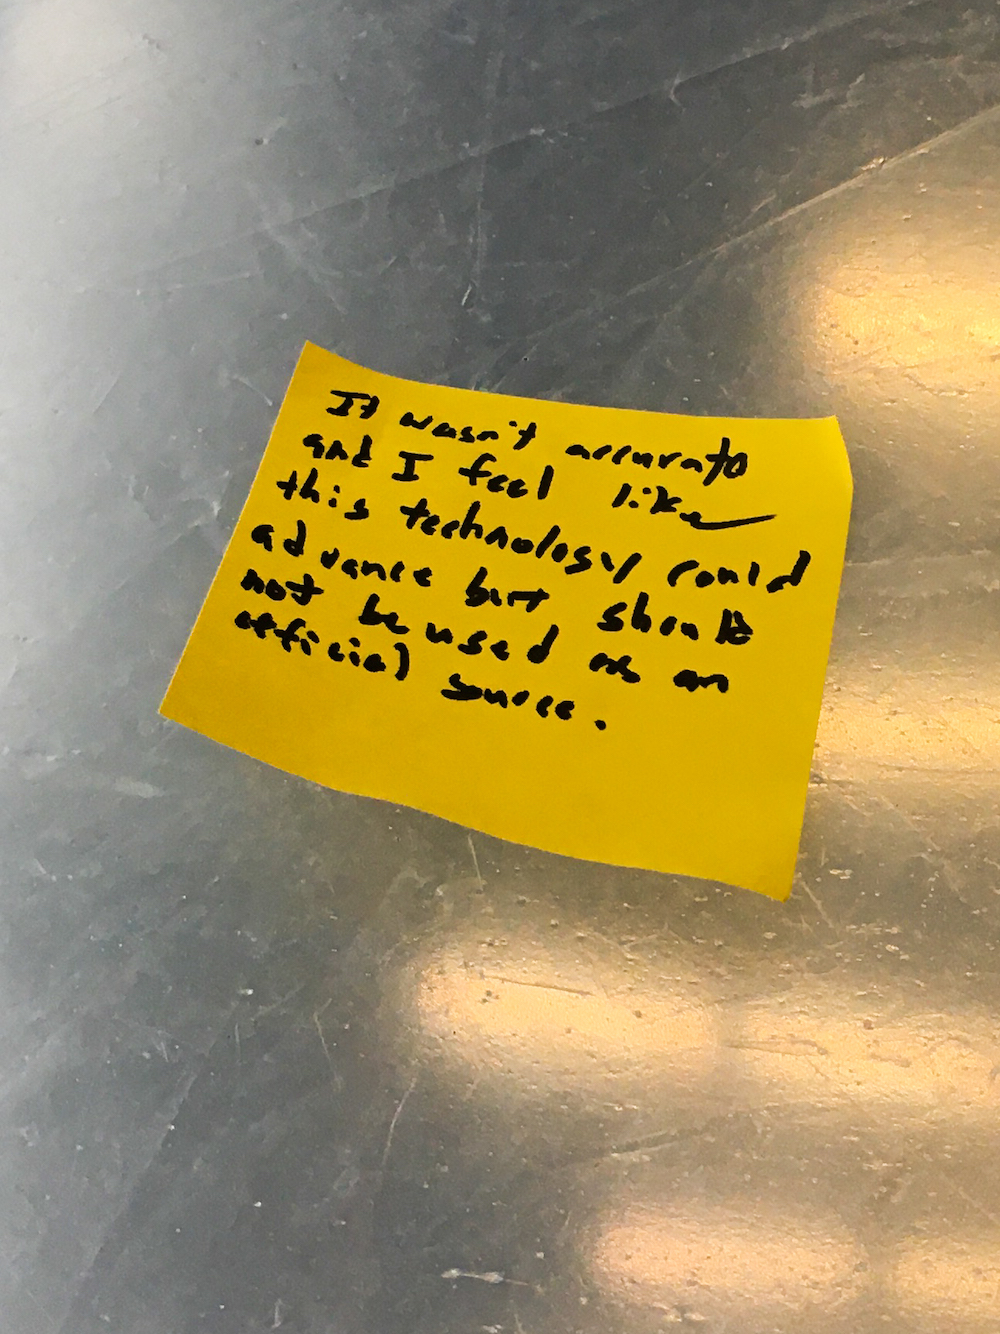 It wasn't accurate
and I feel like
this technology could
advance but should
not be used as an
official source.